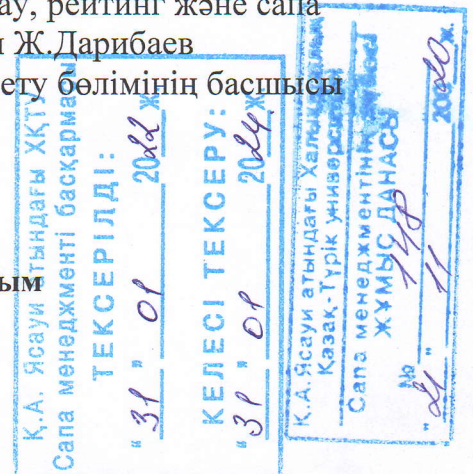 ау, рейтинг және сапа
Ж.Дарибаев
ету бөлімінің басшысы
ым
Қ.А. Ясауи атындағы ХҚТУ
Сапа менеджменті басқармасы
ТЕКСЕРІЛДІ:
"31" 01 2022ж.
КЕЛЕСІ ТЕКСЕРУ:
"31" 01 2024ж.
Қ.А.Ясауи атындағы Халықаралық
Қазақ-Түрік университеті
Сапа менеджментінің
ЖҰМЫС ДАНАСЫ
№ 148
"21" 11 2020